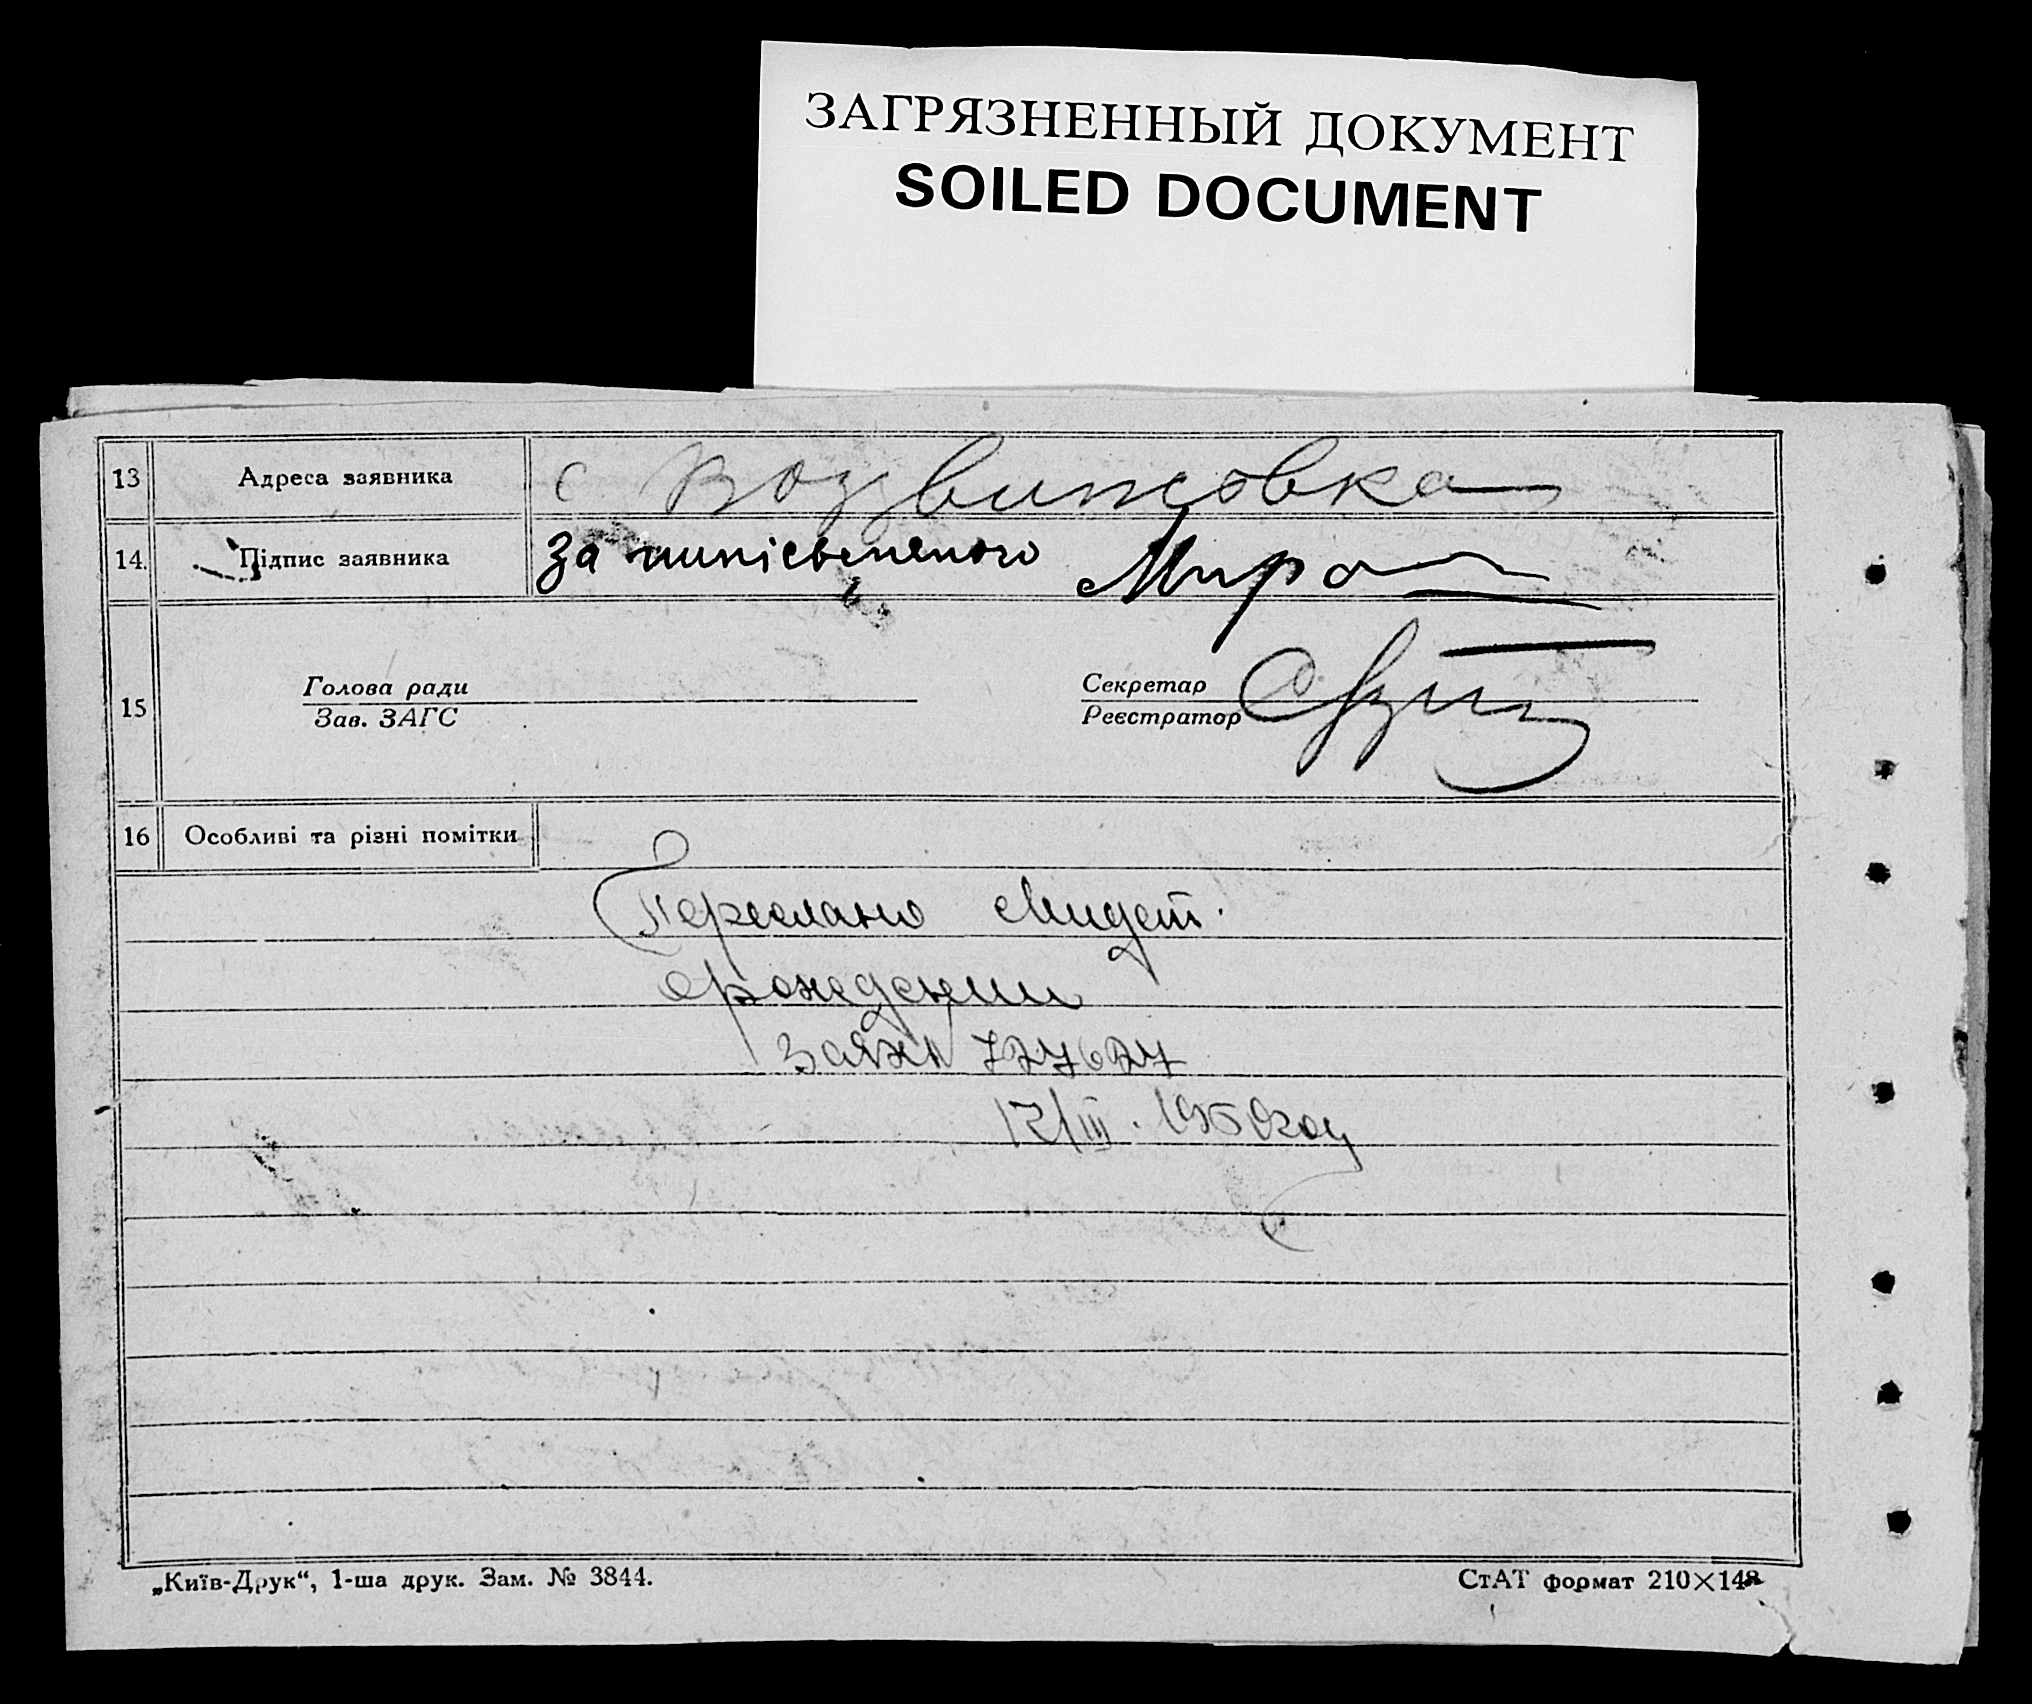 ЗАГРЯЗНЕННЫЙ ДОКУМЕНТ
SOILED DOCUMENT
13 Адреса заявника с Воздвижовка
14. Підпис заявника За Миро
Голова ради Секретар
15
Зав. ЗАГС Реєстратор
16 Особливі та різні помітки
Переслано свидет.
о рождении
727627
12/III. 1950 году
„Київ-Друк“, 1-ша друк. Зам. № 3844. СтАТ формат 210×148